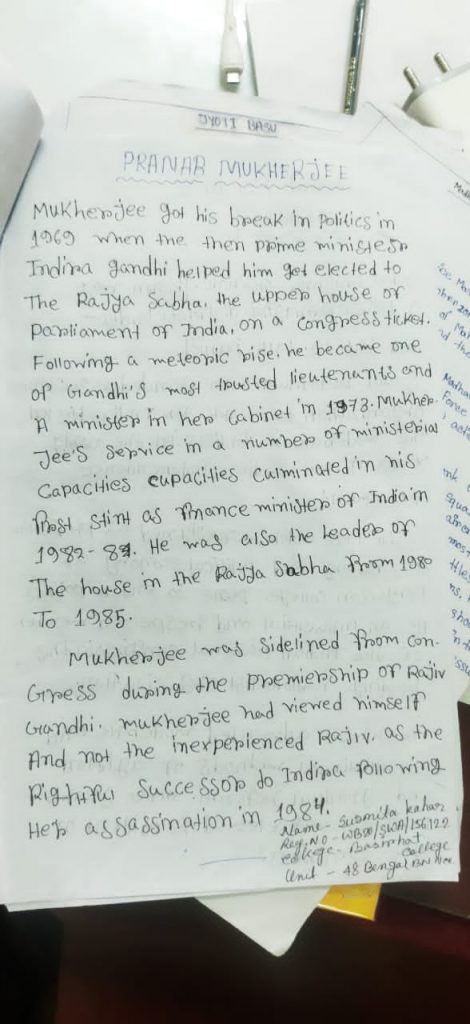 JYOTI BASU
PRANAB MUKHERJEE
Mukherjee got his break in politics in
1969 when the then prime minister
Indira gandhi helped him get elected to
The Rajya Sabha, the upper house of
Parliament of India, on a congress ticket.
Following a meteoric rise. he became one
of Gandhi's most trusted lieutenants and
A minister in her cabinet in 1973. Mukher
Jee's service in a number of ministerial
Capacities cupacities culminated in his
First stint as finance minister of India in
1982-84. He was also the leader of
The house in the Rajya Sabha from 1980
To 1985.
Mukherjee was sidelined from con-
Gress during the premiership of Rajiv
Gandhi. mukherjee had viewed himself
And not the inexperienced Rajiv. as the
Rightful successor to Indira following
Her assassination in 1984.
Name - Susmita Kahar
Reg. No - WB20/SWA/156122
College - Basirhat
College
Unit - 48 Bengal BN NCC